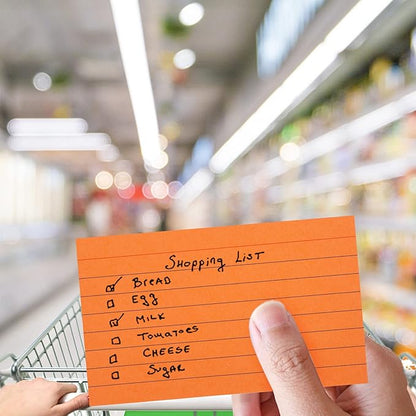 Shopping List
☑ Bread
☐ Egg
☑ Milk
☐ Tomatoes
☐ Cheese
☐ Sugar